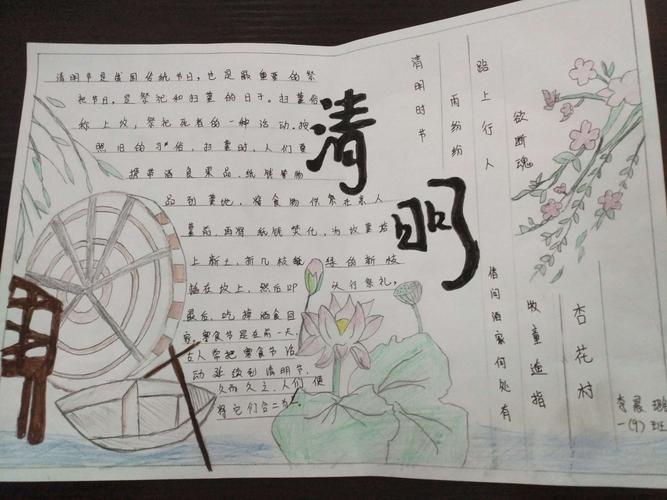 清明节是我国传统节日,也是最重要的祭
祀节日,是祭祀和扫墓的日子。扫墓俗
称上坟,祭祀死者的一种活动。按
照旧的习俗,扫墓时,人们要
携带酒食果品、纸钱等物
品到墓地,将食物供祭在亲人
墓前,再将纸钱焚化,为坟墓培
上新土,折几枝嫩绿的新枝
插在坟上,然后叩头行祭礼,
最后,吃掉酒食回
家。寒食节是在前一天,
古人常把寒食节活
动延续到清明节,
久而久之,人们便
将它们合二为一。
清明
清明时节
雨纷纷
路上行人
欲断魂
借问酒家何处有
牧童遥指
杏花村
李
一(9)班